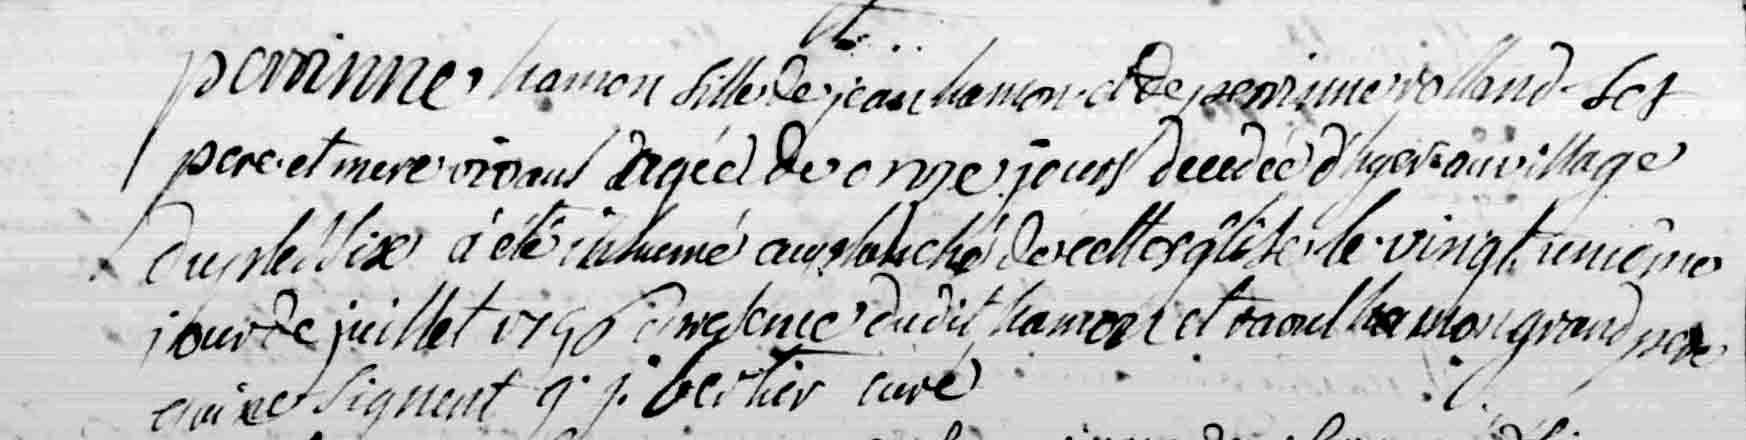 perrinne hamon fille de jean hamon et de perrinne rolland ses
pere et mere vivans agée de onze jours decedée d'hyer au village
du plessix a été inhumé au placiche de cette église le vingt unième
jour de juillet presence dudit hamon et raoul hamon grand pere
qui ne signent g. j. bertier curé